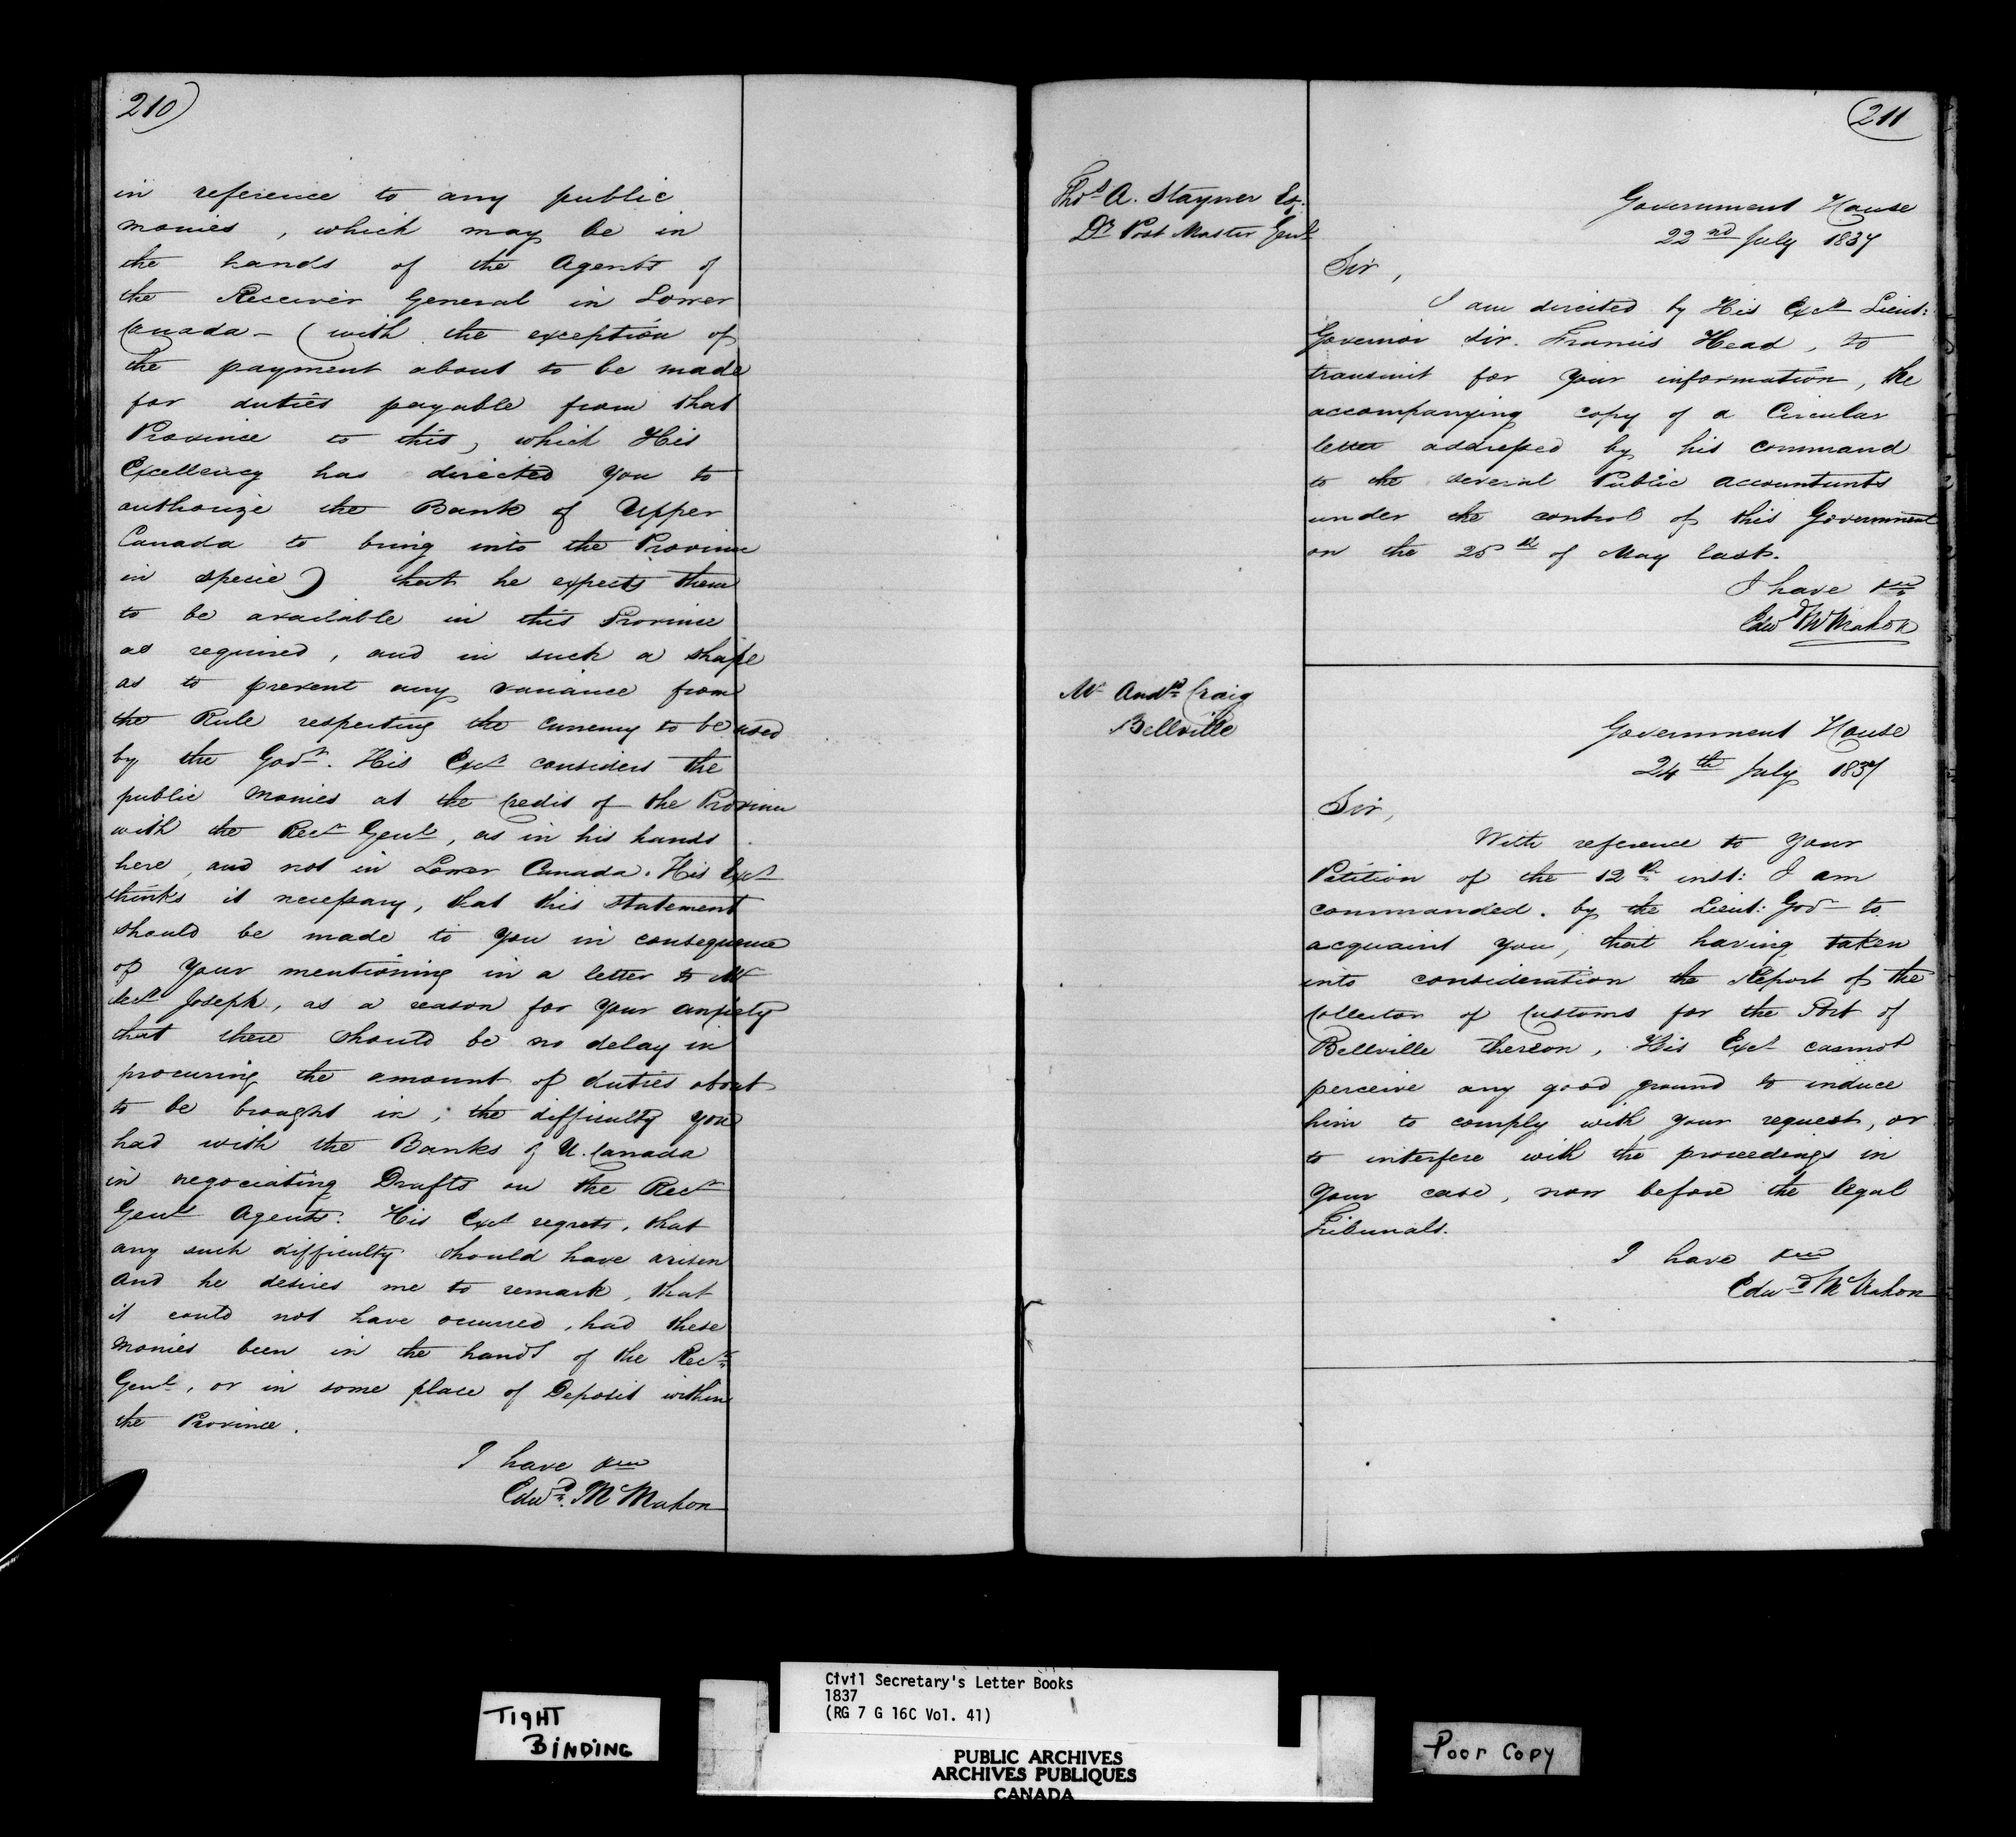 210)
in reference to any public
monies, which may be in
the hands of the Agents of
the Receiver General in Lower
Canada - (with the exception of
the payment about to be made
for duties payable from that
Province to this, which His
Excellency has directed you to
authorize the Bank of Upper
Canada to bring into the Province
in specie) that he expects them
to be available in this Province
as required, and in such a shape
as to prevent any variance from
the Rule respecting the currency to be used
by the Govr. His Excy considers the
public monies at the credit of the Province
with the Recr Genl, as in his hands
here, and not in Lower Canada. His Excy
thinks it necessary, that this statement
should be made to you in consequence
of your mentioning in a letter to Mr
Secy Joseph, as a reason for your anxiety
that there should be no delay in
procuring the amount of duties about
to be brought in, the difficulty you
had with the Banks of U. Canada
in negociating Drafts on the Recr
Genl Agents. His Excy regrets, that
any such difficulty should have arisen
and he desires me to remark, that
it could not have occurred, had these
monies been in the hands of the Recr
Genl, or in some place of Deposit within
the Province.
I have &c
Edwd. McMahon
(211
Thos A. Stayner Esq.
Dy Post Master Genl
Government House
22nd July 1837
Sir,
I am directed by His Excy Lieut:
Governor Sir. Francis Head, to
transmit for your information, the
accompanying copy of a Circular
letter addressed by his command
to the several Public Accountants
under the control of this Government
on the 25th of May last.
I have &c
Edwd McMahon
Mr Andw Craig
Bellville
Government House
24th July 1837
Sir,
With reference to your
Petition of the 12th inst: I am
commanded. by the Lieut: Govr to
acquaint you, that having taken
into consideration the Report of the
Collector of Customs for the Port of
Bellville thereon, His Excy cannot
perceive any good ground to induce
him to comply with your request, or
to interfere with the proceedings in
your case, now before the legal
Tribunals.
I have &c
Edwd McMahon
TIGHT
BINDING
Civil Secretary's Letter Books
1837
(RG 7 G 16C Vol. 41)
PUBLIC ARCHIVES
ARCHIVES PUBLIQUES
CANADA
Poor Copy